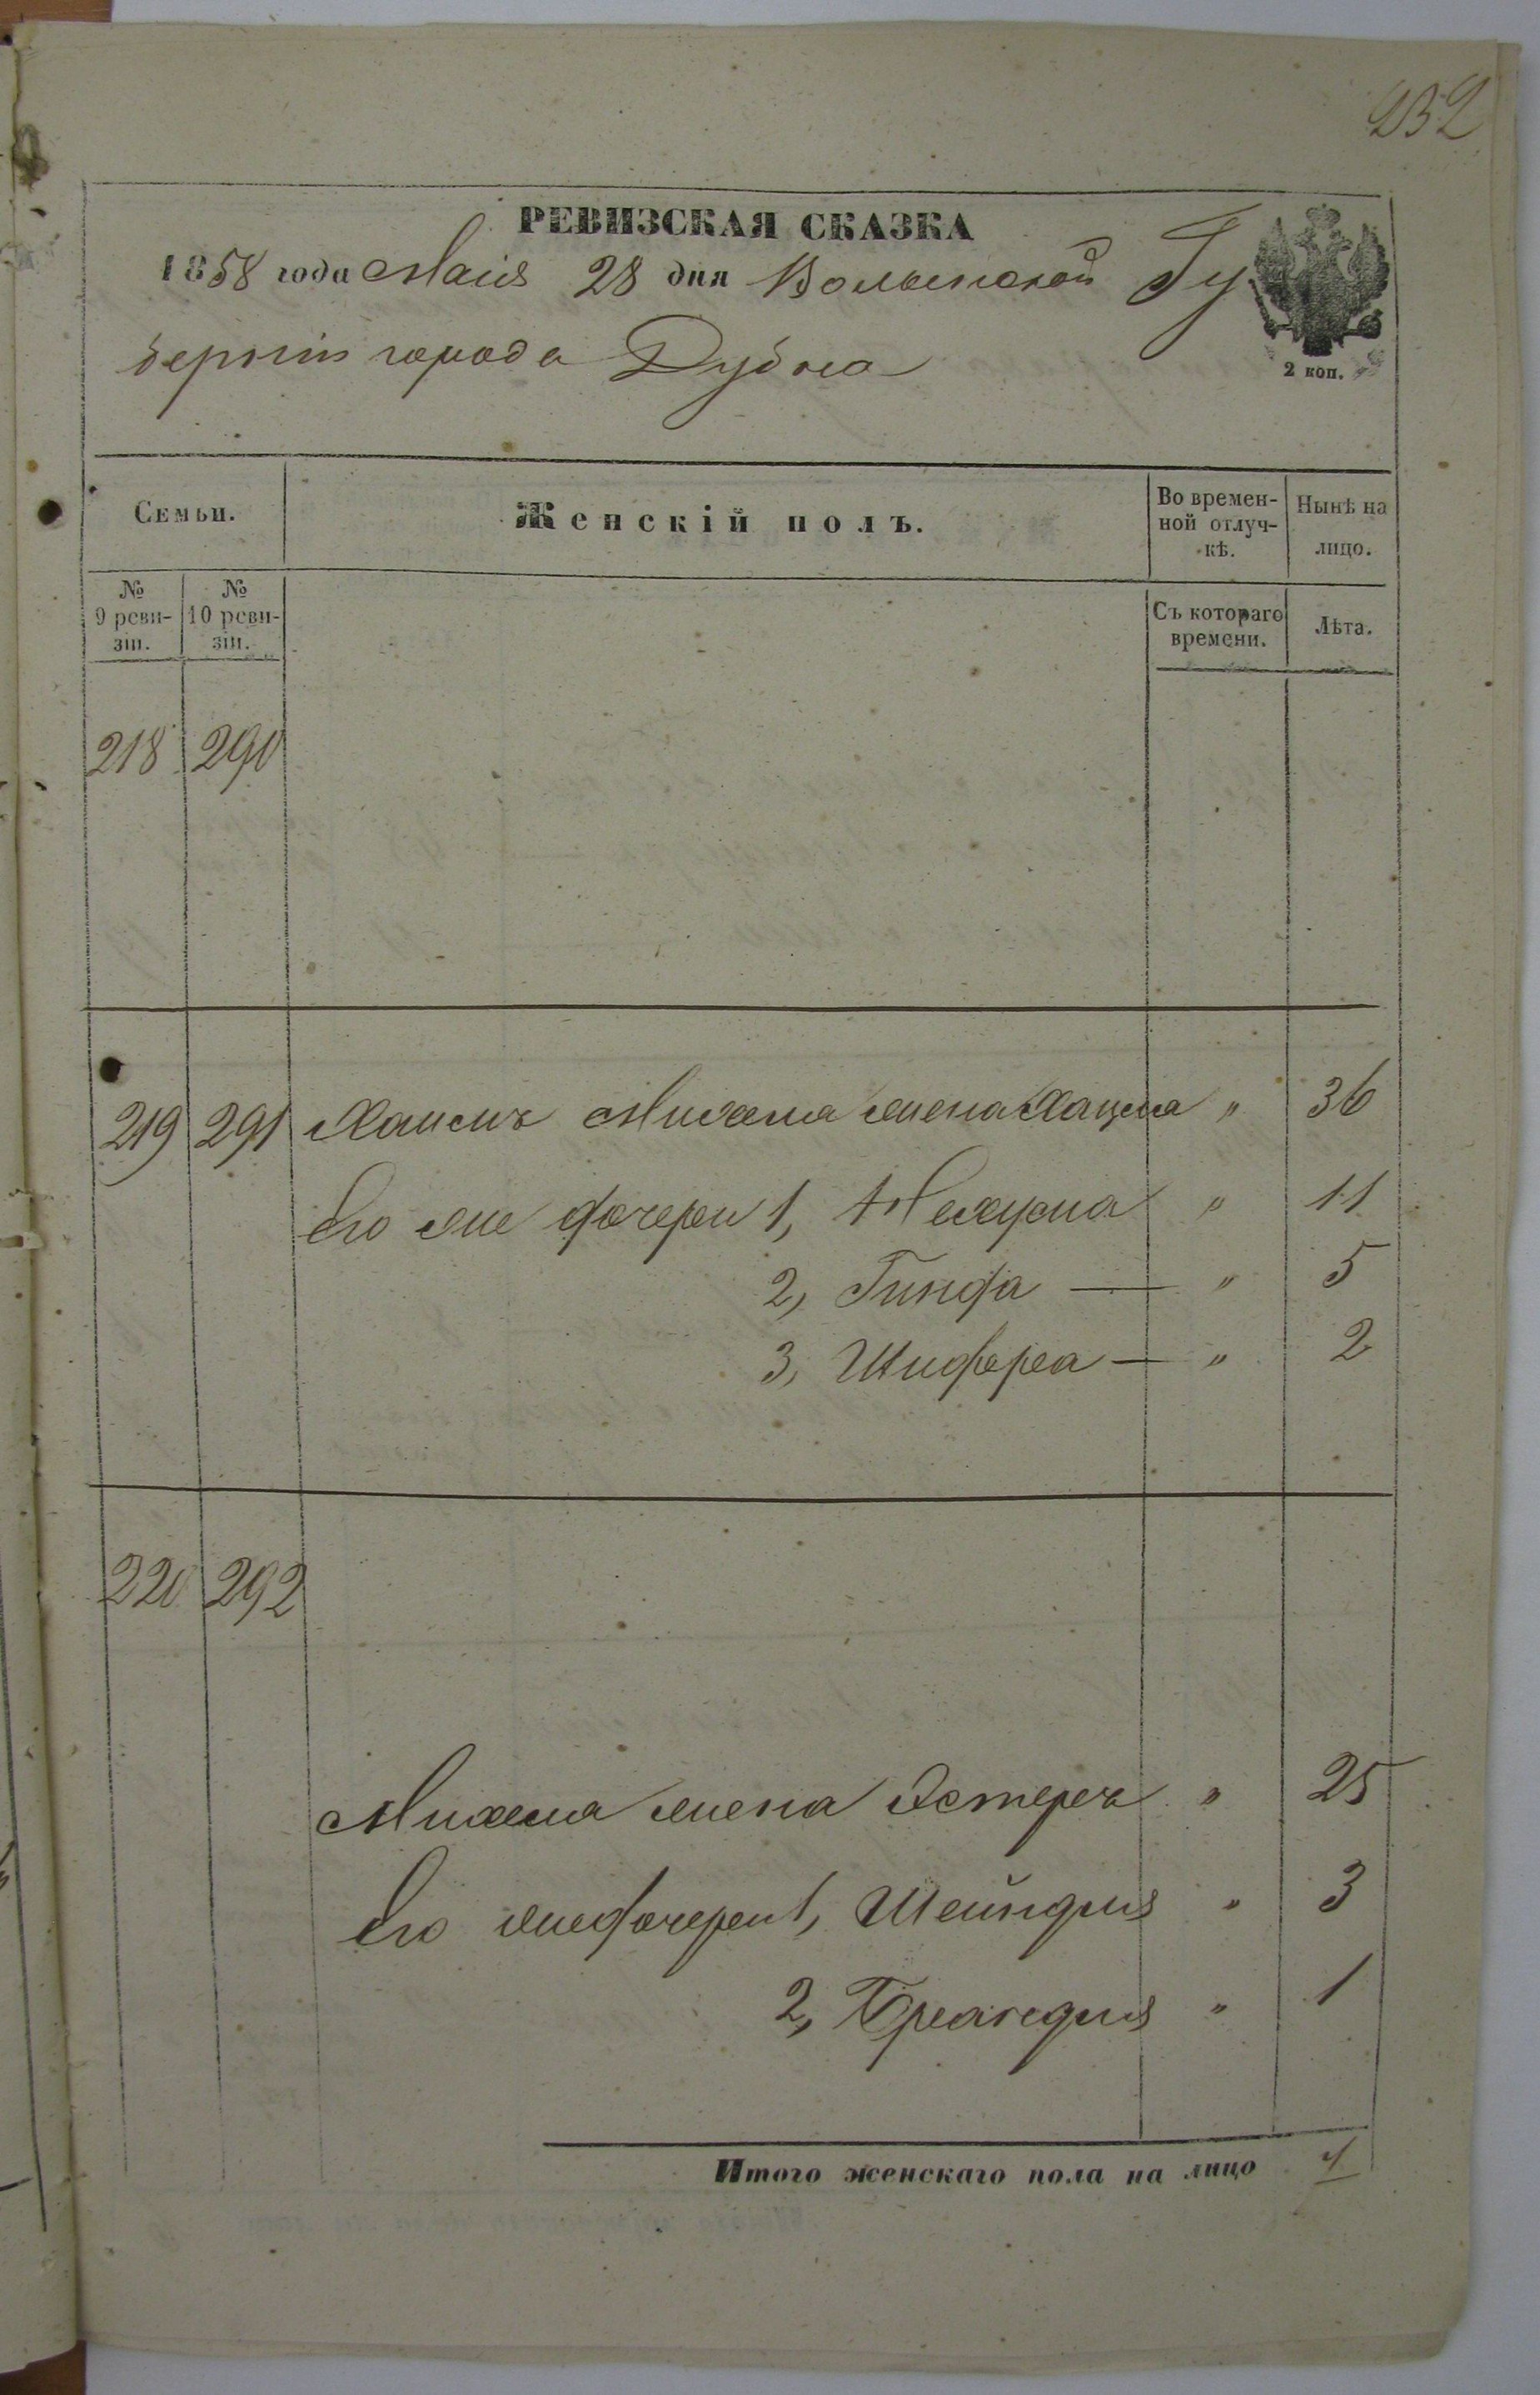 232
РЕВИЗСКАЯ СКАЗКА
1858 года Маія 28 дня Волынской Гу
берніи города Дубна
2 коп.
Семьи.
Женскій полъ.
Во времен-
ной отлуч-
кѣ.
Нынѣ на
лицо.
№
9 реви-
зіи.
№
10 реви-
зіи.
Съ котораго
времени.
Лѣта.
218 290
219 291 Михеля жена " 36
Его же дочери 1, " 11
2, Гинда — " 5
3, Шифра — " 2
220 292
Михеля жена Эстеръ " 25
Его же дочери 1, Шейндля " 3
2, Брандля " 1
Итого женскаго пола на лицо